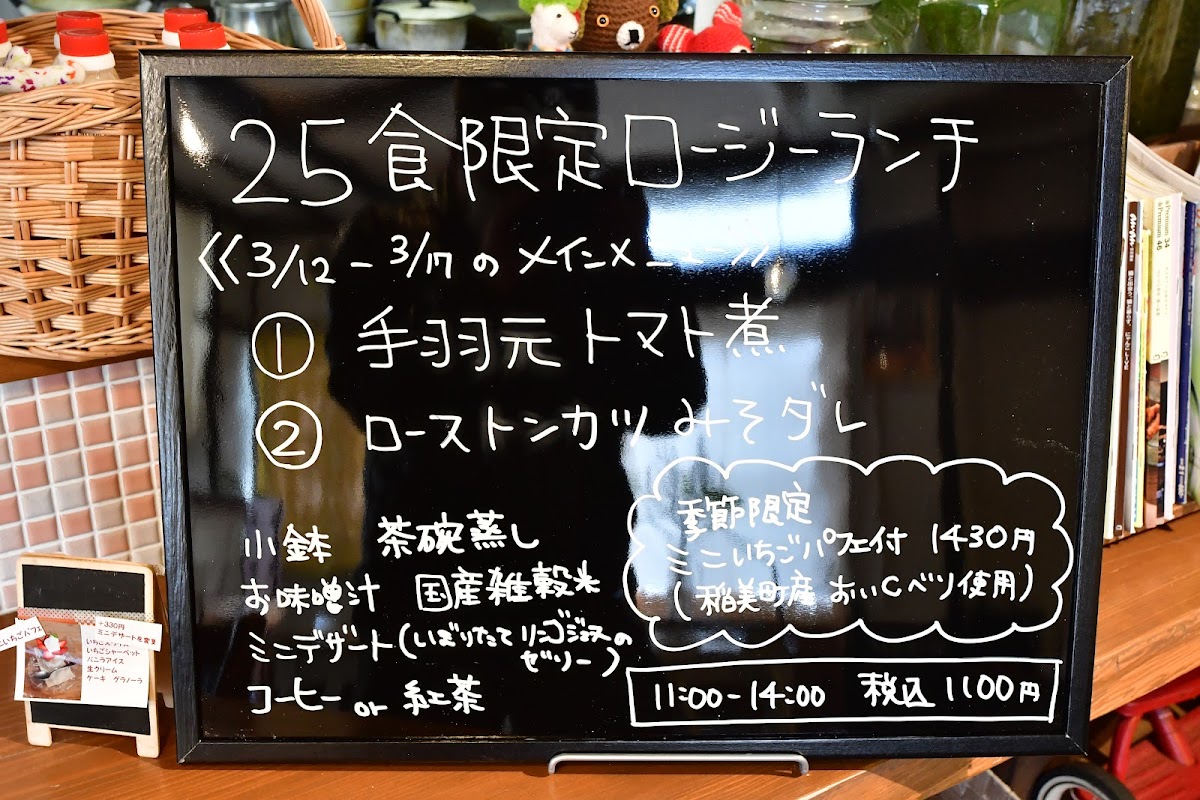 25食限定ロージーランチ
《3/12-3/17のメインメニュー》
① 手羽元トマト煮
② ローストンカツ みそダレ
小鉢 茶碗蒸し
お味噌汁 国産雑穀米
ミニデザート(しぼりたてリンゴジュースの
ゼリー)
コーヒー or 紅茶
季節限定
ミニいちごパフェ付 1430円
(稲美町産 おいCベリ使用)
11:00-14:00 税込 1100円
いちごパフェ
+330円
ミニデザートを変更
いちごシャーベット
バニラアイス
生クリーム
ケーキ グラノーラ
&Premium 34
&Premium 45